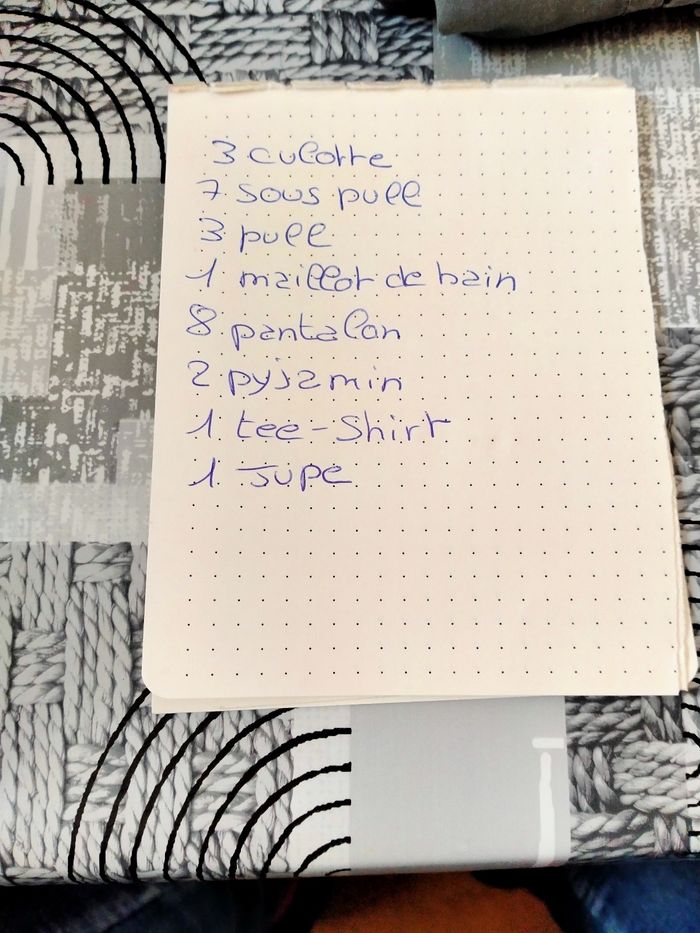 3 culotte
7 sous pull
3 pull
1 maillot de bain
8 pantalon
2 pyjamin
1 tee-shirt
1 jupe